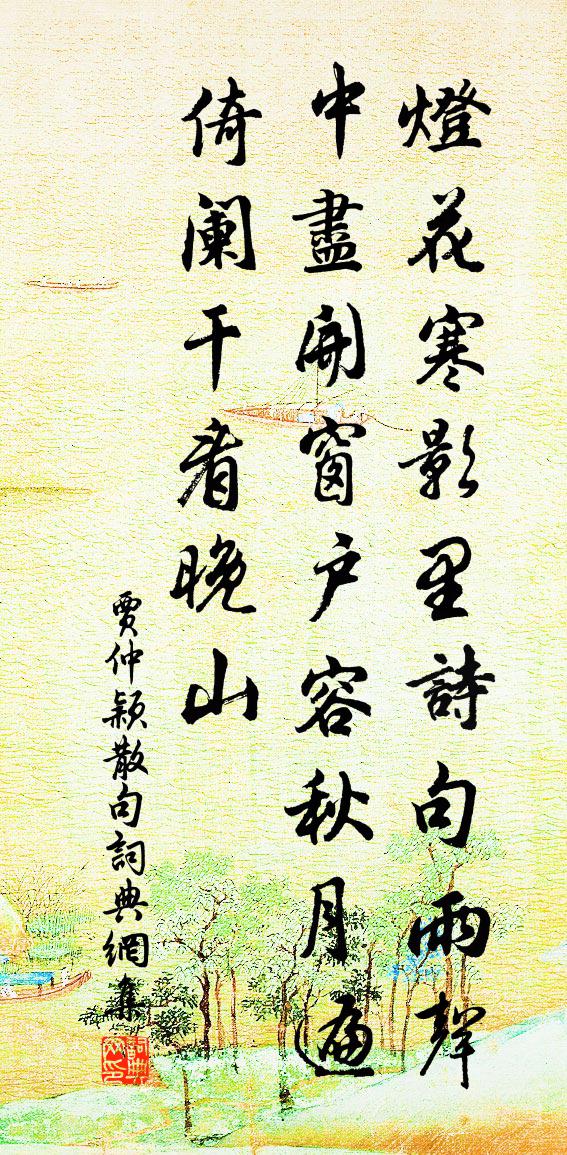 燈花寒影里詩句雨聲
中盡開窗户容秋月遍
倚闌干看晚山
賈仲穎散句詞典網集